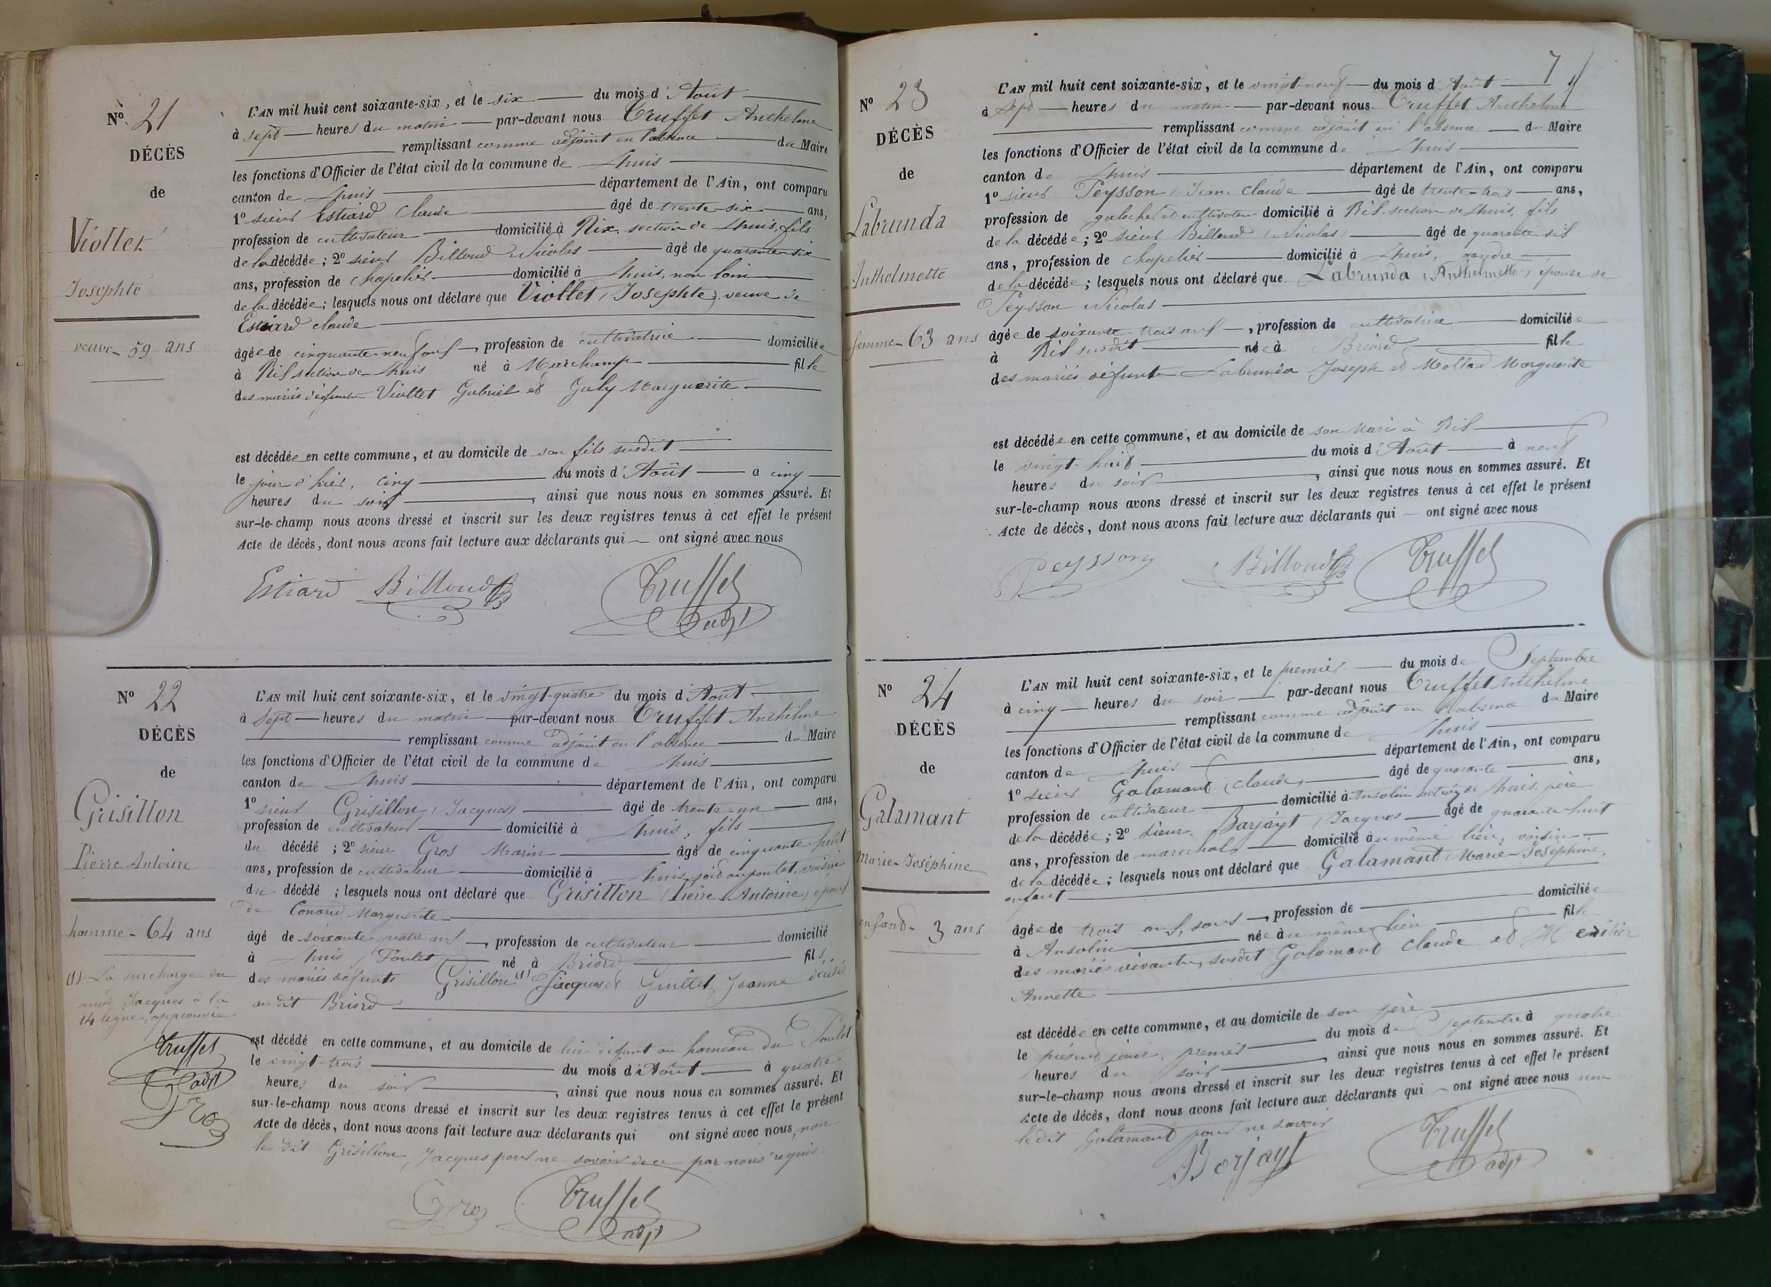 Nº 21
DÉCÈS
de
Viollet
Josephte
veuve - 59 ans
L'AN mil huit cent soixante-six, et le six du mois d'Août
à sept heures du matin par-devant nous Truffet Anthelme
remplissant comme adjoint en l'absence du Maire
les fonctions d'Officier de l'état civil de la commune de Lhuis
canton de Lhuis département de l'Ain, ont comparu
1º sieur Estiard Claude âgé de trente six ans,
profession de cultivateur domicilié à Rix section de Lhuis, fils
de la décédée; 2º sieur Billoud Nicolas âgé de quarante six
ans, profession de chapelier domicilié à Lhuis, non loin
de la décédée; lesquels nous ont déclaré que Viollet (Josephte) veuve de
Estiard Claude
âgée de cinquante neuf ans, profession de cultivatrice domiciliée
à Rix section de Lhuis né à Marchamp fille
des mariés défunts Viollet Gabriel et July Marguerite
est décédée en cette commune, et au domicile de son fils susdit
le jour d'hier, cinq du mois d'Août à cinq
heures du soir, ainsi que nous nous en sommes assuré. Et
sur-le-champ nous avons dressé et inscrit sur les deux registres tenus à cet effet le présent
Acte de décès, dont nous avons fait lecture aux déclarants qui ont signé avec nous
Estiard Billoud Truffet
adjt
Nº 22
DÉCÈS
de
Grisillon
Pierre Antoine
homme - 64 ans
(1) La surcharge du
mot Jacques à la
14 ligne, approuvée
Truffet
adjt
Gros
L'AN mil huit cent soixante-six, et le vingt-quatre du mois d'Août
à sept heures du matin par-devant nous Truffet Anthelme
remplissant comme adjoint en l'absence du Maire
les fonctions d'Officier de l'état civil de la commune de Lhuis
canton de Lhuis département de l'Ain, ont comparu
1º sieur Grisillon (Jacques) âgé de trente un ans,
profession de cultivateur domicilié à Lhuis, fils
du décédé; 2º sieur Gros Marin âgé de cinquante huit
ans, profession de cultivateur domicilié à Lhuis, voisin
du décédé; lesquels nous ont déclaré que Grisillon (Pierre Antoine) époux
de Conand Marguerite
âgé de soixante quatre ans, profession de cultivateur domicilié
à Lhuis, Poulet né à Briord fils
des mariés défunts Grisillon (1) Jacques et Guillet Jeanne
audit Briord
est décédé en cette commune, et au domicile de lui défunt au hameau du Poulet
le vingt trois du mois d'Août à quatre
heures du soir, ainsi que nous nous en sommes assuré. Et
sur-le-champ nous avons dressé et inscrit sur les deux registres tenus à cet effet le présent
Acte de décès, dont nous avons fait lecture aux déclarants qui ont signé avec nous, non
le dit Grisillon Jacques pour ne savoir de ce par nous requis
Gros Truffet
adjt
7
Nº 23
DÉCÈS
de
Labrunda
Anthelmette
femme - 63 ans
L'AN mil huit cent soixante-six, et le vingt neuf du mois d'Août
à sept heures du matin par-devant nous Truffet Anthelme
remplissant comme adjoint en l'absence du Maire
les fonctions d'Officier de l'état civil de la commune de Lhuis
canton de Lhuis département de l'Ain, ont comparu
1º sieur Peysson (Jean Claude âgé de trente trois ans,
profession de et cultivateur domicilié à Rix section de Lhuis, fils
de la décédée; 2º sieur Billoud (Nicolas) âgé de quarante six
ans, profession de chapelier domicilié à Lhuis, gendre
de la décédée; lesquels nous ont déclaré que Labrunda (Anthelmette) épouse de
Peysson Nicolas
âgée de soixante trois ans, profession de cultivatrice domiciliée
à Rix susdit née à Briord fille
des mariés défunts Labrunda Joseph et Mollard Marguerite
est décédée en cette commune, et au domicile de son mari à Rix
le vingt-huit du mois d'Août à neuf
heures du soir, ainsi que nous nous en sommes assuré. Et
sur-le-champ nous avons dressé et inscrit sur les deux registres tenus à cet effet le présent
Acte de décès, dont nous avons fait lecture aux déclarants qui ont signé avec nous
Peysson Billoud Truffet
Nº 24
DÉCÈS
de
Galamant
Marie Joséphine
enfant - 3 ans
L'AN mil huit cent soixante-six, et le premier du mois de Septembre
à cinq heures du soir par-devant nous Truffet Anthelme
remplissant comme adjoint en l'absence du Maire
les fonctions d'Officier de l'état civil de la commune de Lhuis
canton de Lhuis département de l'Ain, ont comparu
1º sieur Galamant (Claude) âgé de quarante ans,
profession de cultivateur domicilié à Ansolin section de Lhuis, père
de la décédée; 2º sieur Barjayt (Jacques âgé de quarante huit
ans, profession de domicilié au même lieu, voisin
de la décédée; lesquels nous ont déclaré que Galamant Marie Joséphine,
enfant
âgée de trois ans, sans, profession de domiciliée
à Ansolin née au même lieu fille
des mariés vivants, susdit Galamant Claude et
Annette
est décédée en cette commune, et au domicile de son père
le présent jour, premier du mois de Septembre à quatre
heures du soir, ainsi que nous nous en sommes assuré. Et
sur-le-champ nous avons dressé et inscrit sur les deux registres tenus à cet effet le présent
Acte de décès, dont nous avons fait lecture aux déclarants qui ont signé avec nous non
le dit Galamant pour ne savoir
Barjayt Truffet
adjt